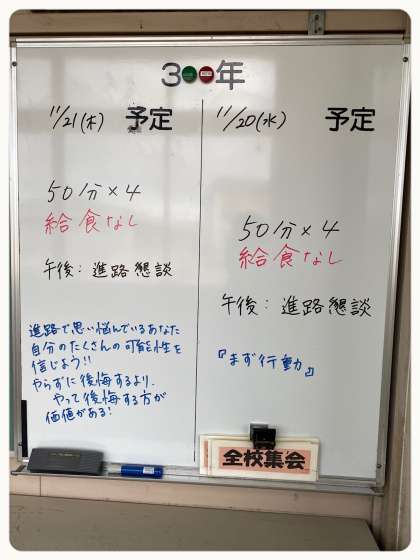 3年
11/20(水) 予定
50分×4
給食なし
午後：進路懇談
『まず行動』
全校集会
11/21(木) 予定
50分×4
給食なし
午後：進路懇談
進路で思い悩んでいるあなた
自分のたくさんの可能性を
信じよう!!
やらずに後悔するより、
やって後悔する方が
価値がある!